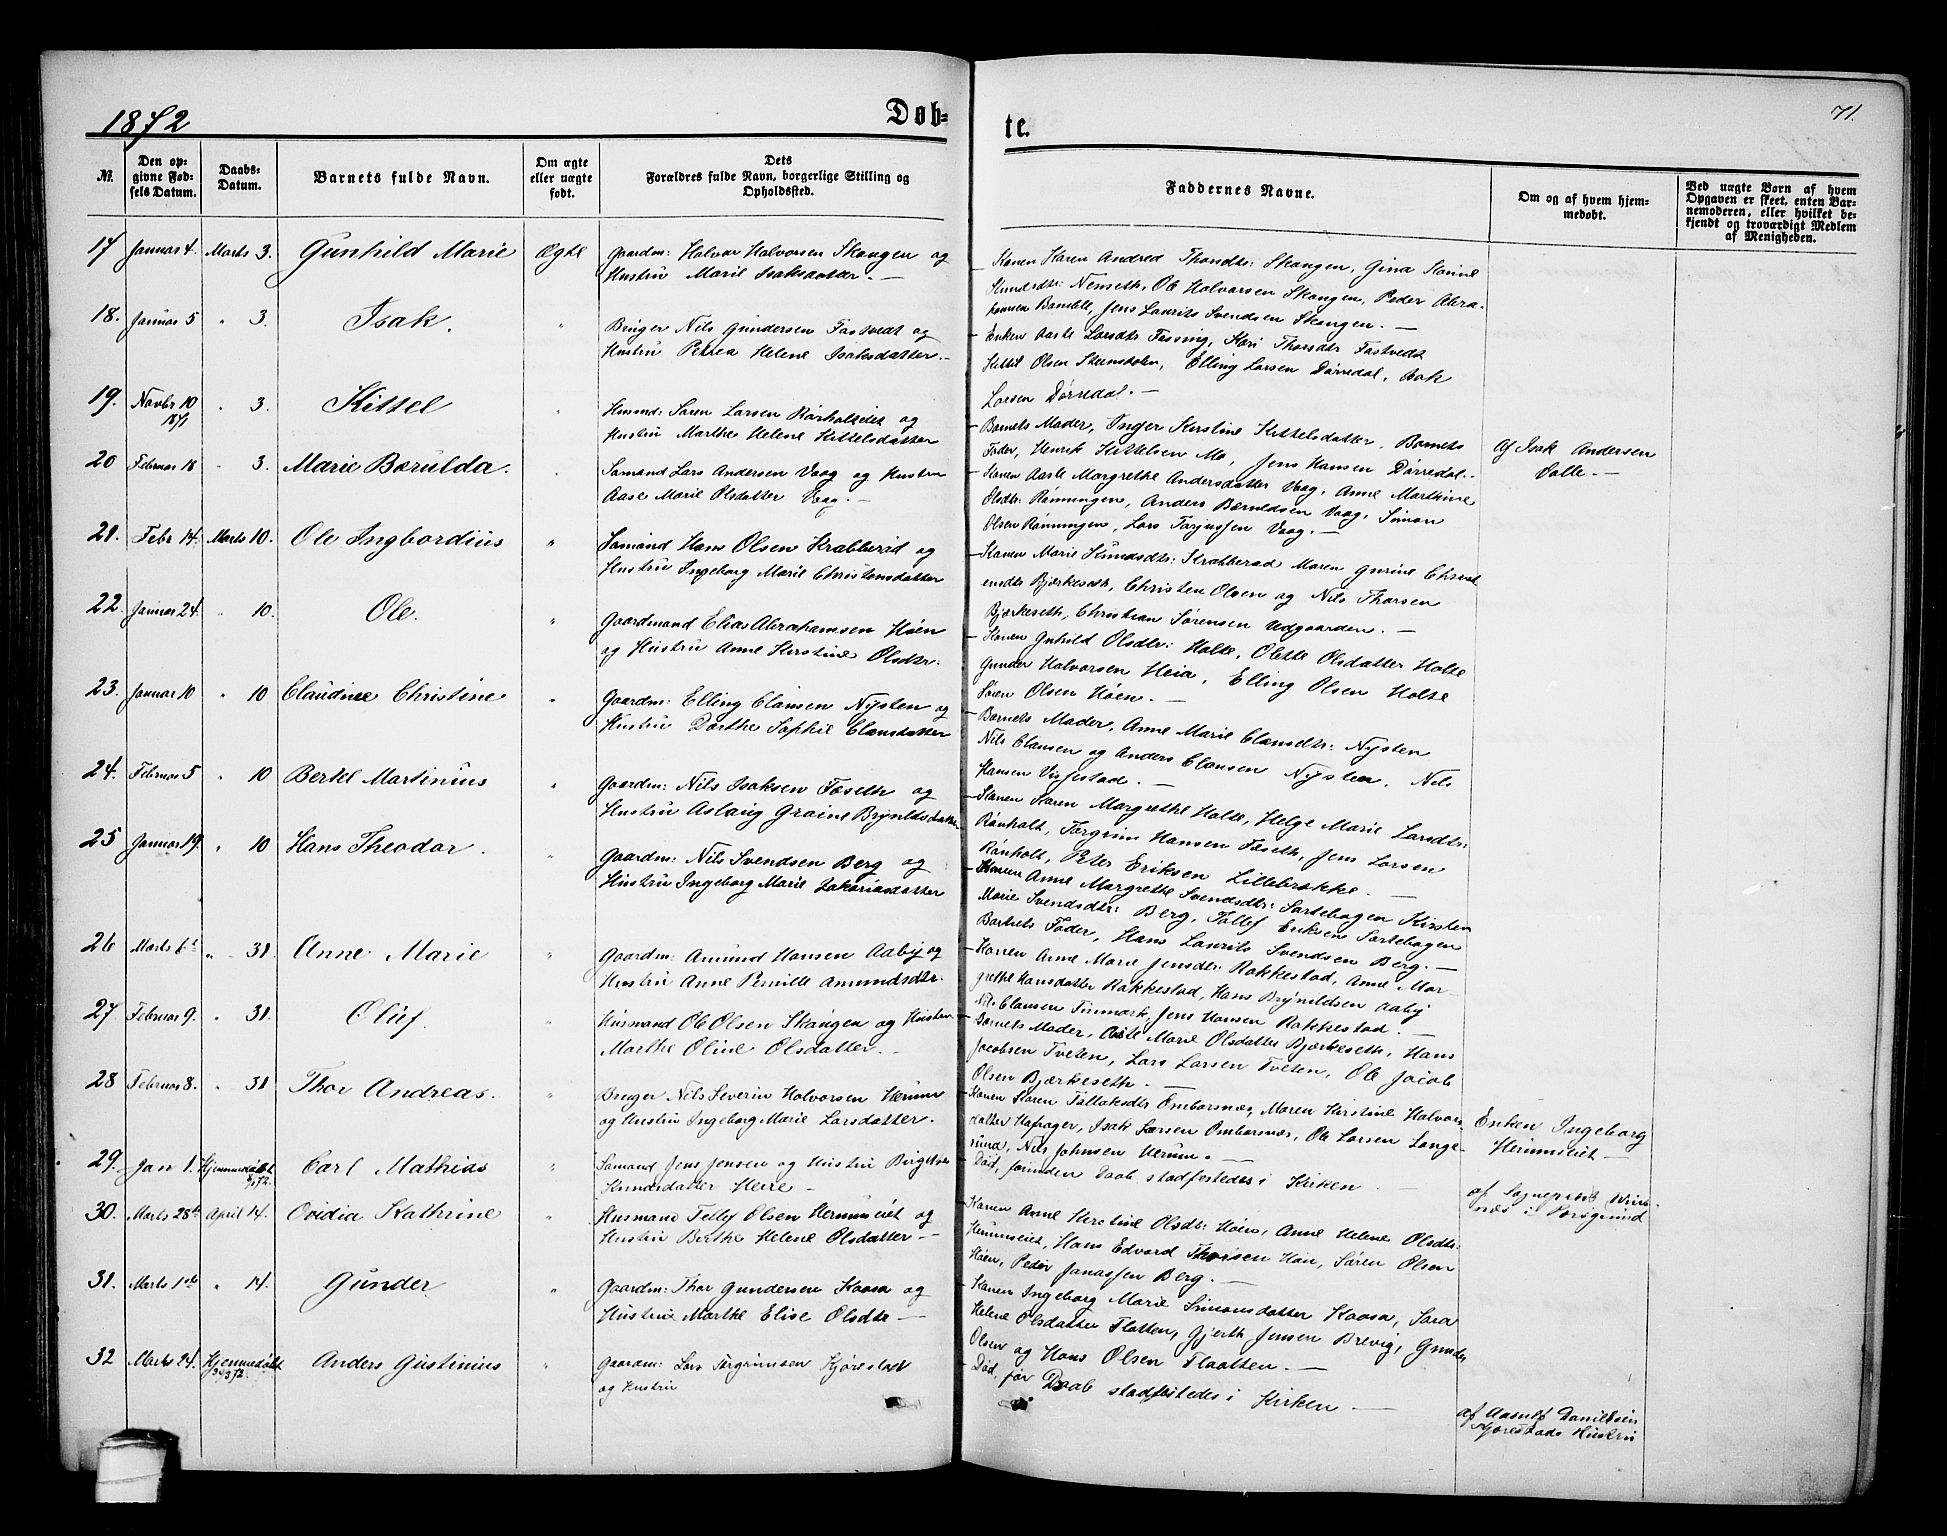 1872
Døb-
te.
71.
№.
Den op-
givne Fød-
sels Datum.
Daabs-
Datum.
Barnets fulde Navn.
Om ægte
eller uægte
født.
Dets
Forældres fulde Navn, borgerlige Stilling og
Opholdssted.
Faddernes Navne.
Om og af hvem hjem-
medøbt.
Ved uægte Børn af hvem
Opgaven er skeet, enten Bar-
nemoderen, eller hvilket be-
kjendt og troværdigt Medlem
af Menigheden.
17 Januar 4. Marts 3. Gunhild Marie Ægte
Gaardm: Halvor Halvorsen Skougen og
Hustru Marie Isaksdatter. —
Konen Karen Andrea Thorsdtr: Skougen, Gina Karine
Knudsdtr: Nenseth, Ole Halvorsen Skougen, Peder Abra-
hamsen Bamble, Jens Laurits Svendsen Skougen. —
18. Januar 5 " 3. Isak. "
Bruger Nils Gundersen Fostvedt og
Hustru Petrea Helene Isaksdatter. —
Enken Aaste Larsdtr Fossing, Kari Thorsdtr Fostvedt
Kittil Olsen Steinsdalen, Elling Larsen Dørredal, Isak
Larsen Dørredal. —
19. Novbr 10 1871 " 3. Kittel "
Husmd: Søren Larsen Rørholteiet og
Hustru Marthe Helene Kittelsdatter
Barnets Moder, Inger Kirstine Kittelsdatter, Barnets
Fader, Henrik Kittelsen Mo, Jens Hansen Dørredal.
Af Isak Andersen
Valle. —
20 Februar 18 " 3. Marie Børulda. "
Sømand Lars Andersen Vaag og Hustru
Aase Marie Olsdatter Vaag. —
Konen Aaste Margrethe Andersdatter Vaag, Anne Marthine
Olsdtr: Rønningen, Anders Børulfsen Vaag, Simon
Olsen Rønningen, Lars Torjussen Vaag. —
21. Febr 14. Marts 10. Ole Ingbordius "
Sømand Hans Olsen Krabberød og
Hustru Ingeborg Marie Christensdatter
Konen Marie Knudsdtr: Krabberød Maren Gurine Christ-
ensdtr Bjerkeseth, Christen Olsen og Nils Thorsen
Bjerkeseth, Christian Sørensen Udgaarden. —
22. Januar 24. " 10. Ole. "
Gaardmand Elias Abrahamsen Høen
og Hustru Anne Kirstine Olsdtr:
Konen Gunhild Olsdtr: Holte, Olette Olsdatter Holte
Gunder Halvorsen Heia, Elling Olsen Holte
Søren Olsen Høen. —
23. Januar 10 " 10 Claudine Christine "
Gaardm: Elling Clausen Nysten og
Hustru Dorthe Sophie Clausdatter
Barnets Moder, Anne Marie Clausdtr: Nysten
Nils Clausen og Anders Clausen Nysten, Nils
Hansen Vissestad. —
24. Februar 5 " 10 Bertel Martinius "
Gaardm: Nils Isaksen Foseth og
Hustru Aslaug Graine Brynildsdatter
Konen Karen Margrethe Holte, Helge Marie Larsdtr:
Rønholt, Torgrim Hansen Foseth, Jens Larsen
Rønholt, Peter Eriksen Lillebrække. —
25 Januar 19. " 10 Hans Theodor. "
Gaardm: Nils Svendsen Berg og
Hustru Ingeborg Marie Zakariasdatter
Konen Anne Margrethe Svendsdtr: Sortebogen Kirsten
Marie Svendsdtr: Berg, Tollef Eriksen Sortebogen
Barnets Fader, Hans Laurits Svendsen Berg. —
26 Marts 6te " 31 Anne Marie "
Gaardm: Amund Hansen Aaby og
Hustru Anne Pernille Amundsdtr.
Konen Anne Marie Jensdtr: Rakkestad, Anne Mar-
grethe Hansdatter Rakkestad, Hans Brynildsen Aaby
Nils Clausen Finmark, Jens Hansen Rakkestad. —
27 Februar 9. " 31. Oluf. "
Husmand Ole Olsen Skougen og Hustru
Marthe Oline Olsdatter. —
Barnets Moder, Marie Olsdatter Bjerkeseth, Hans
Jacobsen Tveten, Lars Larsen Tveten, Ole Jacob
Olsen Bjerkeseth. —
28 Februar 8. " 31 Thor Andreas. "
Bruger Nils Severin Halvorsen Herum
og Hustru Ingeborg Marie Larsdatter.
Konen Karen Tollaksdtr Ombarsnes, Maren Kirstine Halvors-
datter Hafsager, Isak Larsen Ombarsnes, Ole Larsen Lange-
sund, Nils Johnsen Herum. —
Enken Ingeborg
Herumseiet —
29. Jan 1. Hjemmedøbt 5/1 72. Carl Mathias "
Sømand Jens Jensen og Hustru Birgithe
Knudsdatter Herre —
Død, forinden Daab stadfestedes i Kirken —
af Sognepræst
i Porsgrund
30. Marts 28de April 14. Ovidia Kathrine "
Husmand Tellef Olsen Herumseiet og
Hustru Berthe Helene Olsdatter —
Konen Anne Kirstine Olsdtr: Høen, Anne Helene Olsdtr:
Herumseiet, Hans Edvard Thorsen Høen, Søren Olsen
Høen, Peder Jonassen Berg. —
31. Marts 1ste " 14. Gunder "
Gaardm: Thor Gundersen Kaasa og
Hustru Marthe Elise Olsdtr —
Konen Ingeborg Marie Simonsdatter Kaasa, Sara
Helene Olsdatter Flotten, Gjerth Jensen Brevig, Gunder
Olsen og Hans Olsen Flaatten. —
32 Marts 24. Hjemmedøbt 30/3 72. Anders Gustinius "
Gaardm: Lars Torgrimsen Kjørestad
og Hustru
Død, før Daab stadfestedes i Kirken —
af Aanulf Danielsen
Kjørestads Hustru